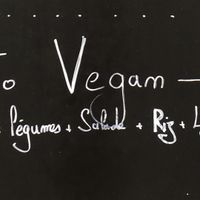 Vegan -
Légumes + Salade + Riz +